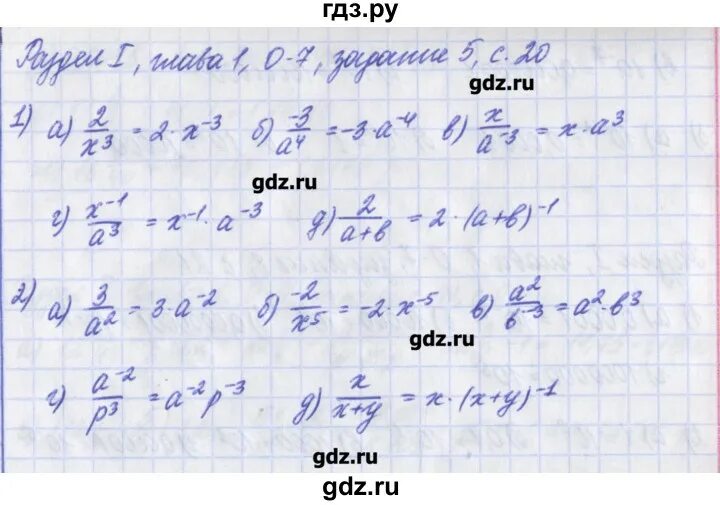 гдз.ру
Раздел I, глава 1, О-7, задание 5, с. 20
gdz.ru
1) а) 2/x³ = 2·x⁻³ б) -3/a⁴ = -3·a⁻⁴ в) x/a⁻³ = x·a³
gdz.ru
г) x⁻¹/a³ = x⁻¹·a⁻³ д) 2/(a+b) = 2·(a+b)⁻¹
2) а) 3/a² = 3·a⁻² б) -2/x⁵ = -2·x⁻⁵ в) a²/b⁻³ = a²·b³
gdz.ru
г) a⁻²/p³ = a⁻²p⁻³ д) x/(x+y) = x·(x+y)⁻¹
gdz.ru
gdz.ru